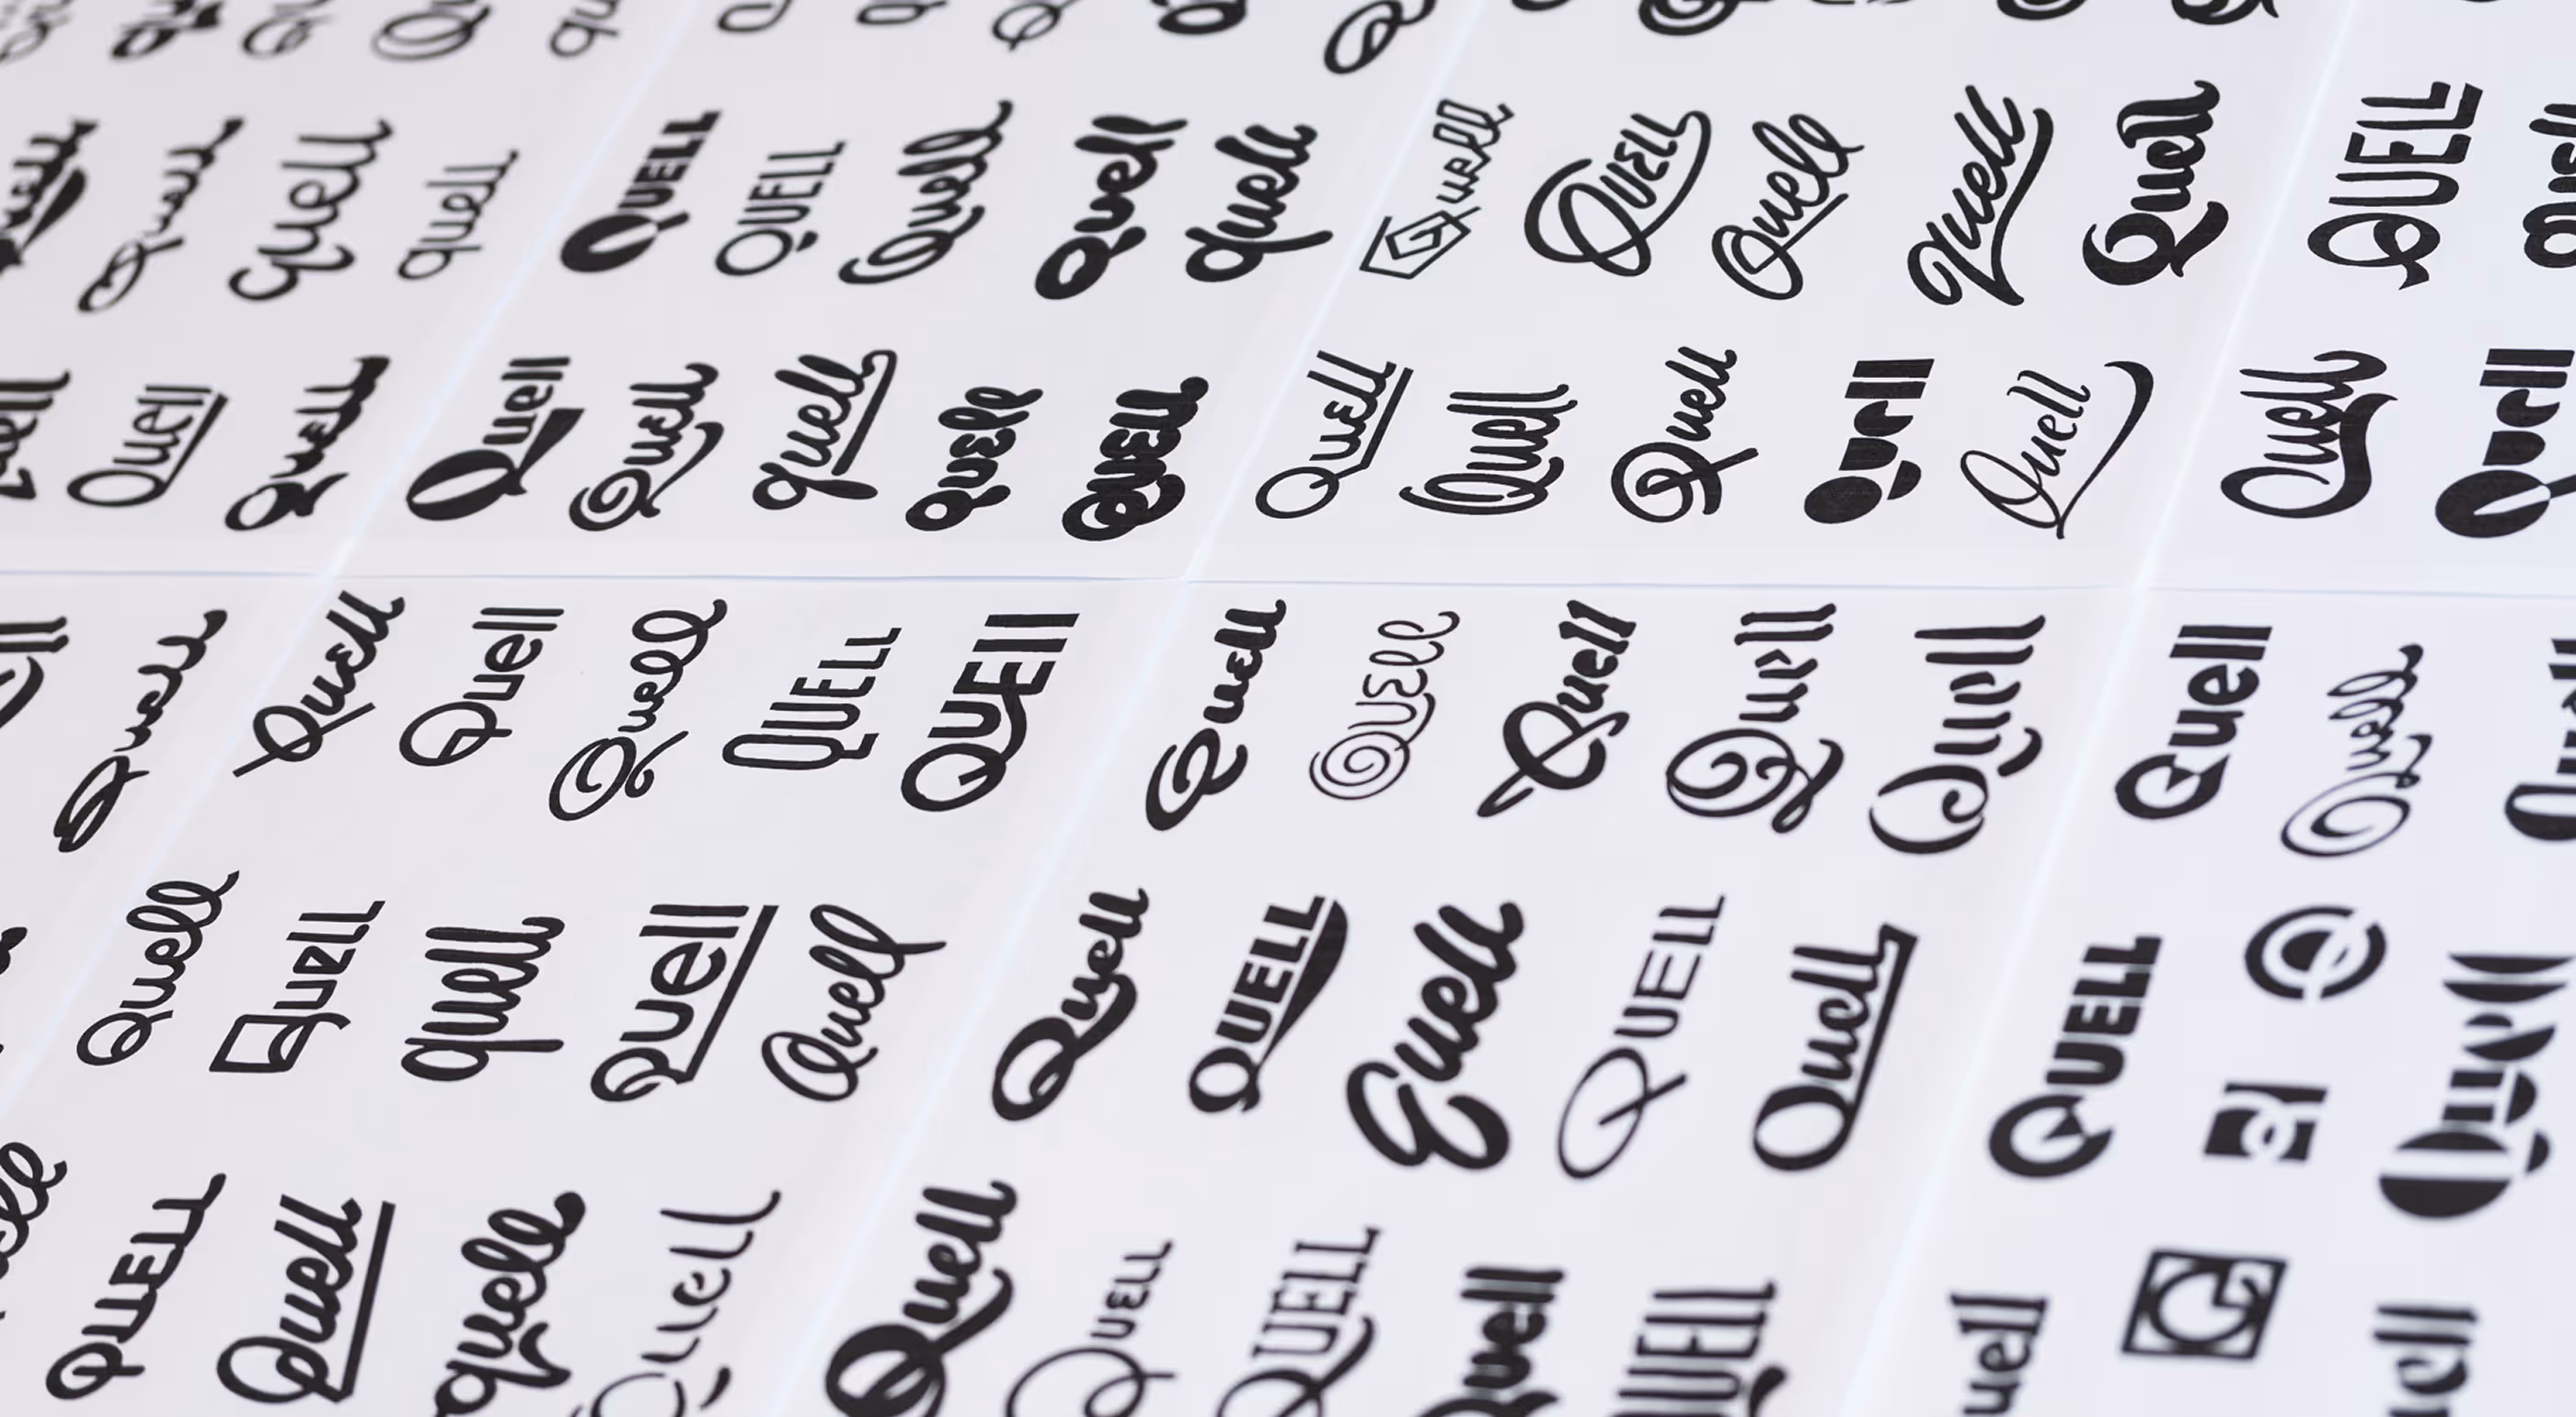 Quell Quell quell QUELL QUELL Quell Quell quell Quell QUELL Quell Quell Quell QUELL
Quell Quell Quell Quell quell Quell QUELL QUELL Quell Quell Quell Quell Quell Quell
Quell Quell Quell Quell QUELL QUELL Quell QUELL Quell Quell Quell Quell Quell
Quell Quell quell Quell Quell Quell QUELL Quell QUELL Quell QUELL
QUELL Quell quell Quell Quell QUELL QUELL Quell QUELL